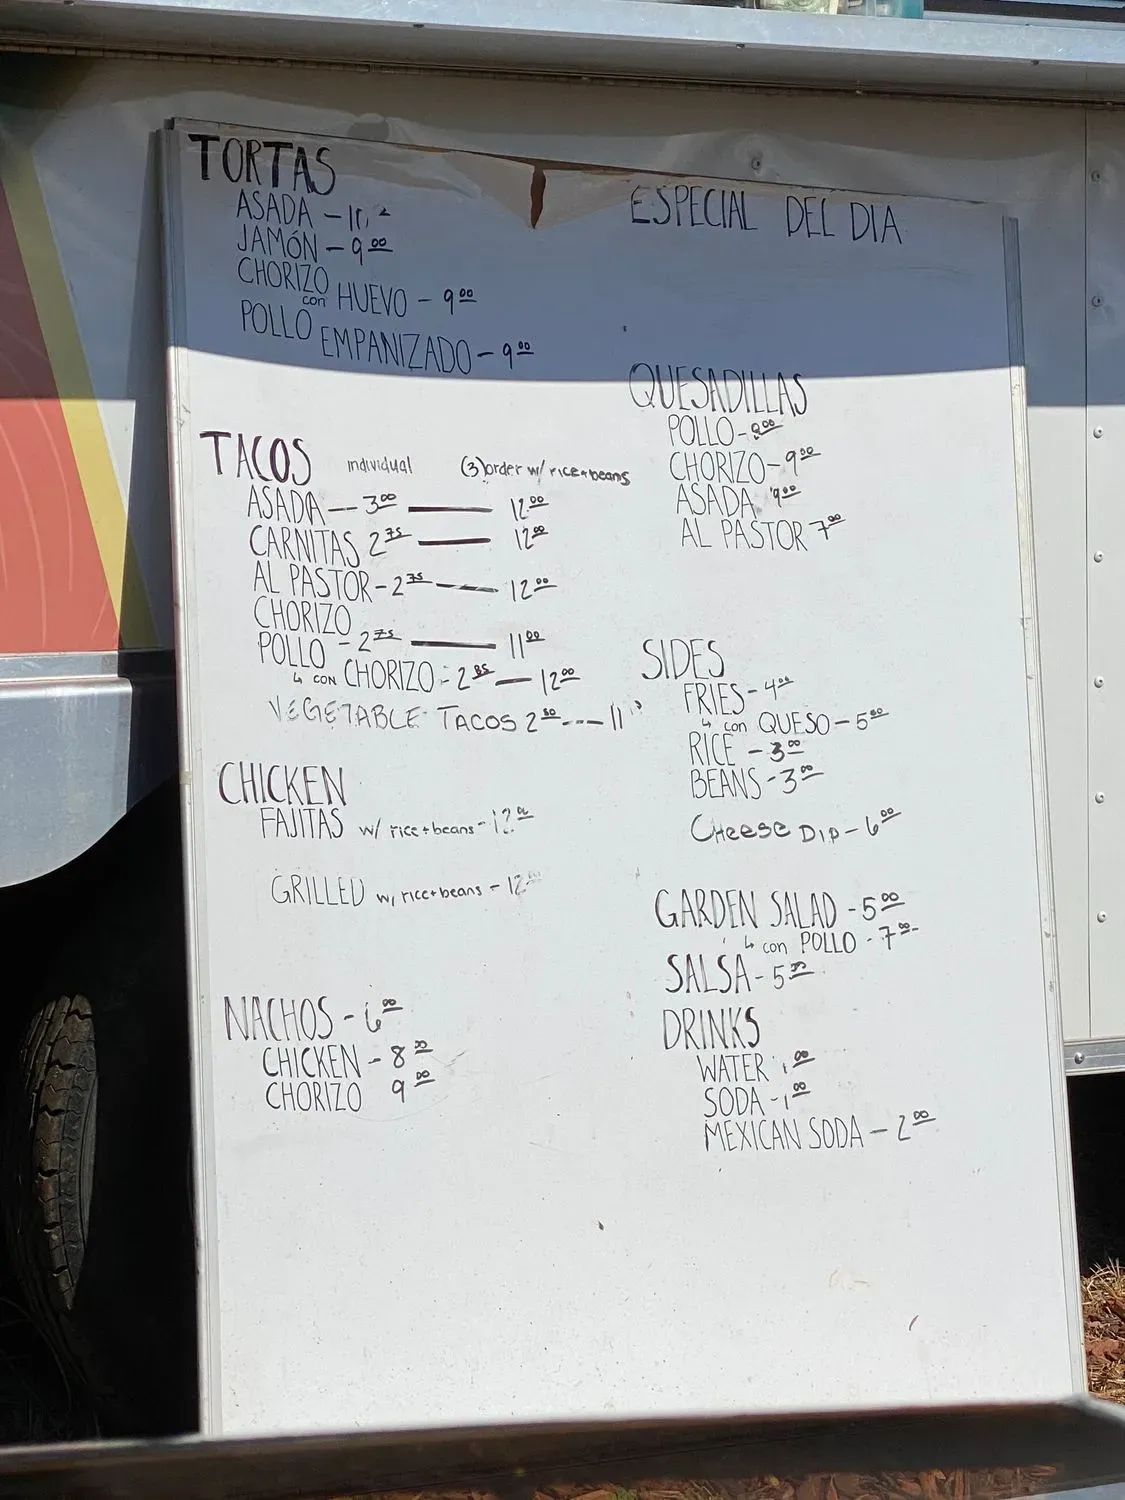 TORTAS
ASADA -
JAMÓN - 9 00
CHORIZO
con HUEVO - 9 00
POLLO EMPANIZADO - 9 00
TACOS individual (3) order w/ rice + beans
ASADA - 3 00 - 12 00
CARNITAS 2 75 - 12 00
AL PASTOR - 2 75 - 12 00
CHORIZO
POLLO - 2 75 - 11 00
↳ con CHORIZO - 2 85 - 12 00
VEGETABLE TACOS 2 50 --- 11
CHICKEN
FAJITAS w/ rice + beans - 12 00
GRILLED w/ rice + beans - 12
NACHOS - 6 00
CHICKEN - 8 00
CHORIZO 9 00
ESPECIAL DEL DIA
QUESADILLAS
POLLO -
CHORIZO - 9 00
ASADA 9 00
AL PASTOR 7 00
SIDES
FRIES - 4 00
↳ con QUESO - 5 50
RICE - 3 00
BEANS - 3 00
CHEESE DIP - 6 00
GARDEN SALAD - 5 00
↳ con POLLO - 7 00
SALSA - 5
DRINKS
WATER 1 00
SODA - 1 00
MEXICAN SODA - 2 00